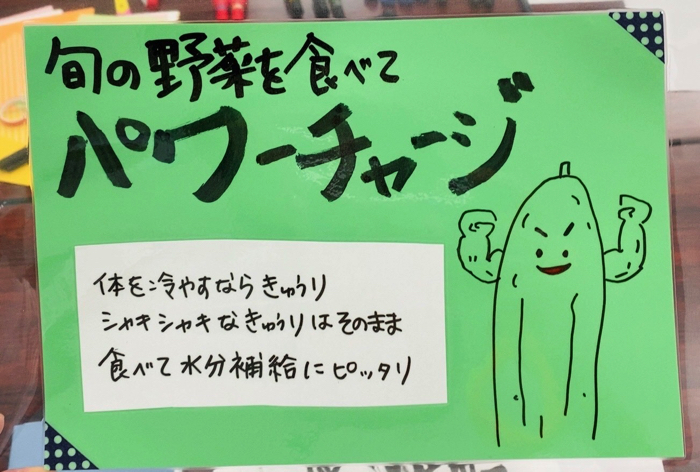 旬の野菜を食べて
パワーチャージ
体を冷やすならきゅうり
シャキシャキなきゅうりはそのまま
食べて水分補給にピッタリ